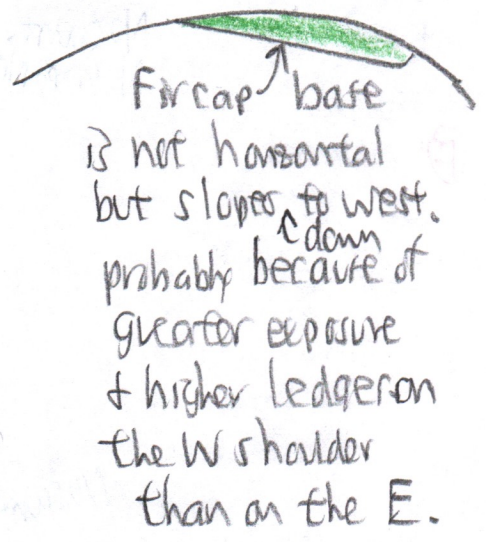 Fir cap base
is not horizontal
but slopes down to west.
probably because of
greater exposure
& higher ledges on
the W shoulder
than on the E.